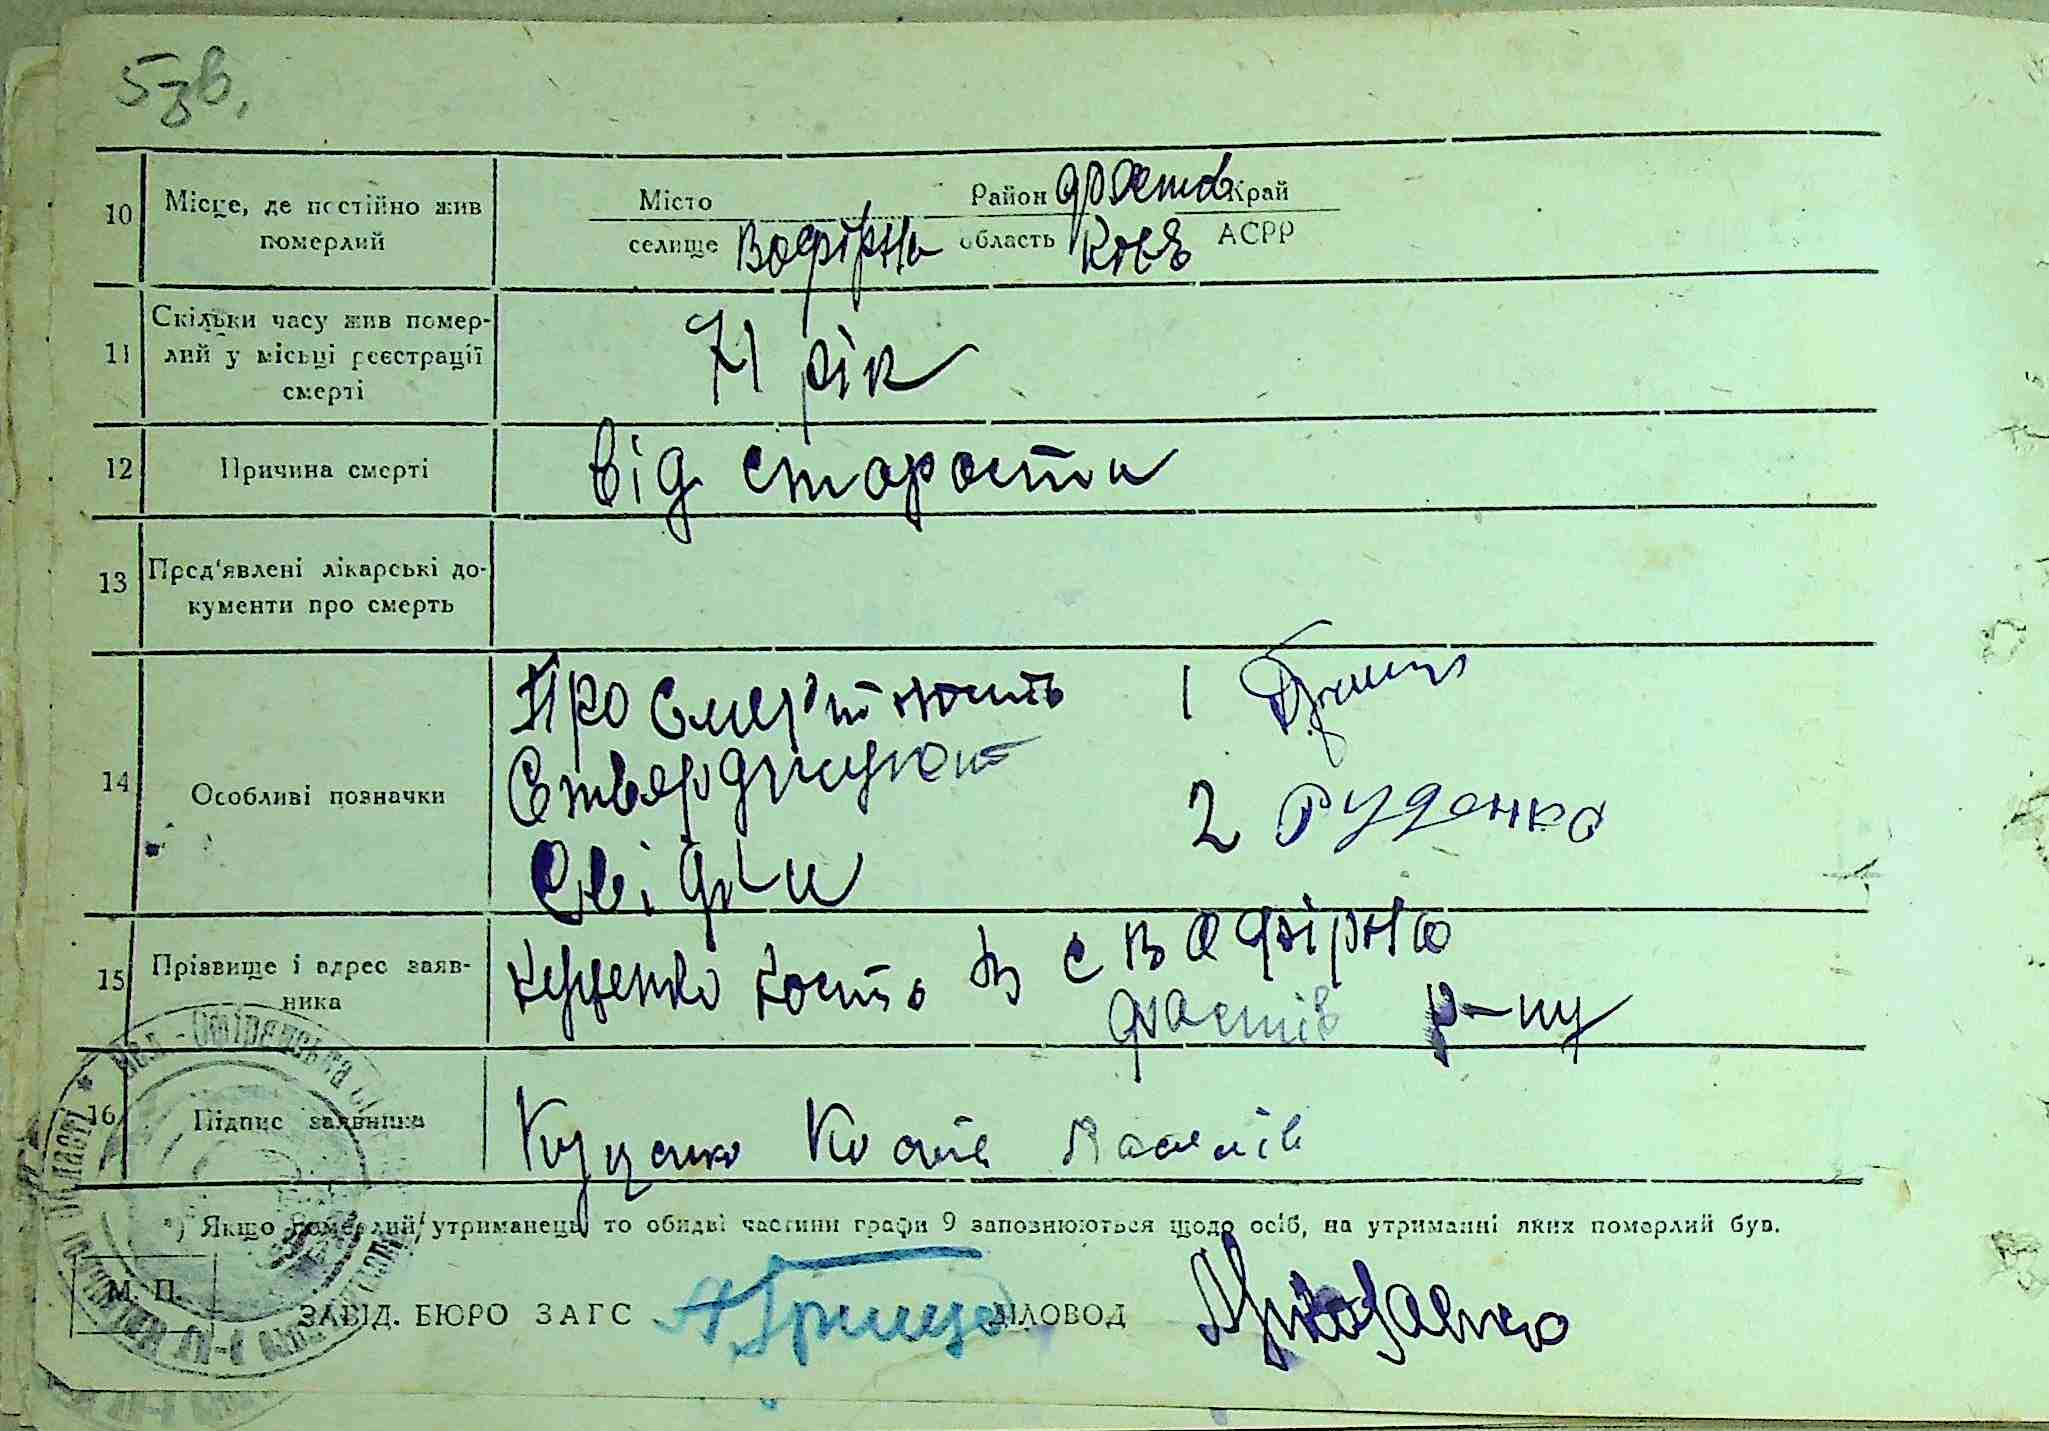 5зв.
10 Місце, де постійно жив померлий
Місто Район Фастов Край
селище Вофірна область Київ АСРР
11 Скільки часу жив помер-
лий у місьці реєстрації
смерті
71 рік
12 Причина смерті
від старости
13 Пред'явлені лікарські до-
кументи про смерть
14 Особливі позначки
Про смертність 1
Стверджують
2 Руденко
Свідки
15 Прізвище і адрес заяв-
ника
Куценко Кость В с Вофірно
Фастів р-ну
16 Підпис заявника
Куценко Кость Василів
*) Якщо померлий утриманець, то обидві частини графи 9 заповнюються щодо осіб, на утриманні яких померлий був.
М. П.
ЗАВІД. БЮРО ЗАГС А Грищо ДІЛОВОД